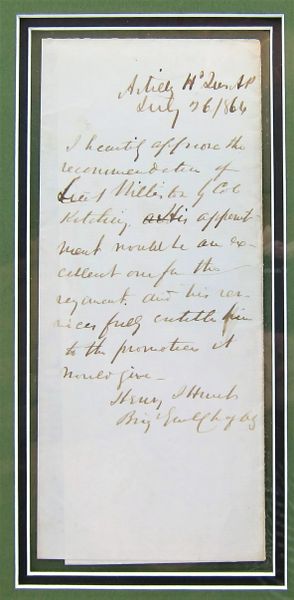 Artilly Hd Qrs AP
July 26/864
I heartily approve the
recommendation of
Lieut Williston by Col
Kitching. as His appoint-
ment would be an ex-
cellent one for the
regiment and his ser-
vices fully entitle him
to the promotion it
would give —
Henry J Hunt
Brig Genl Ch of Arty